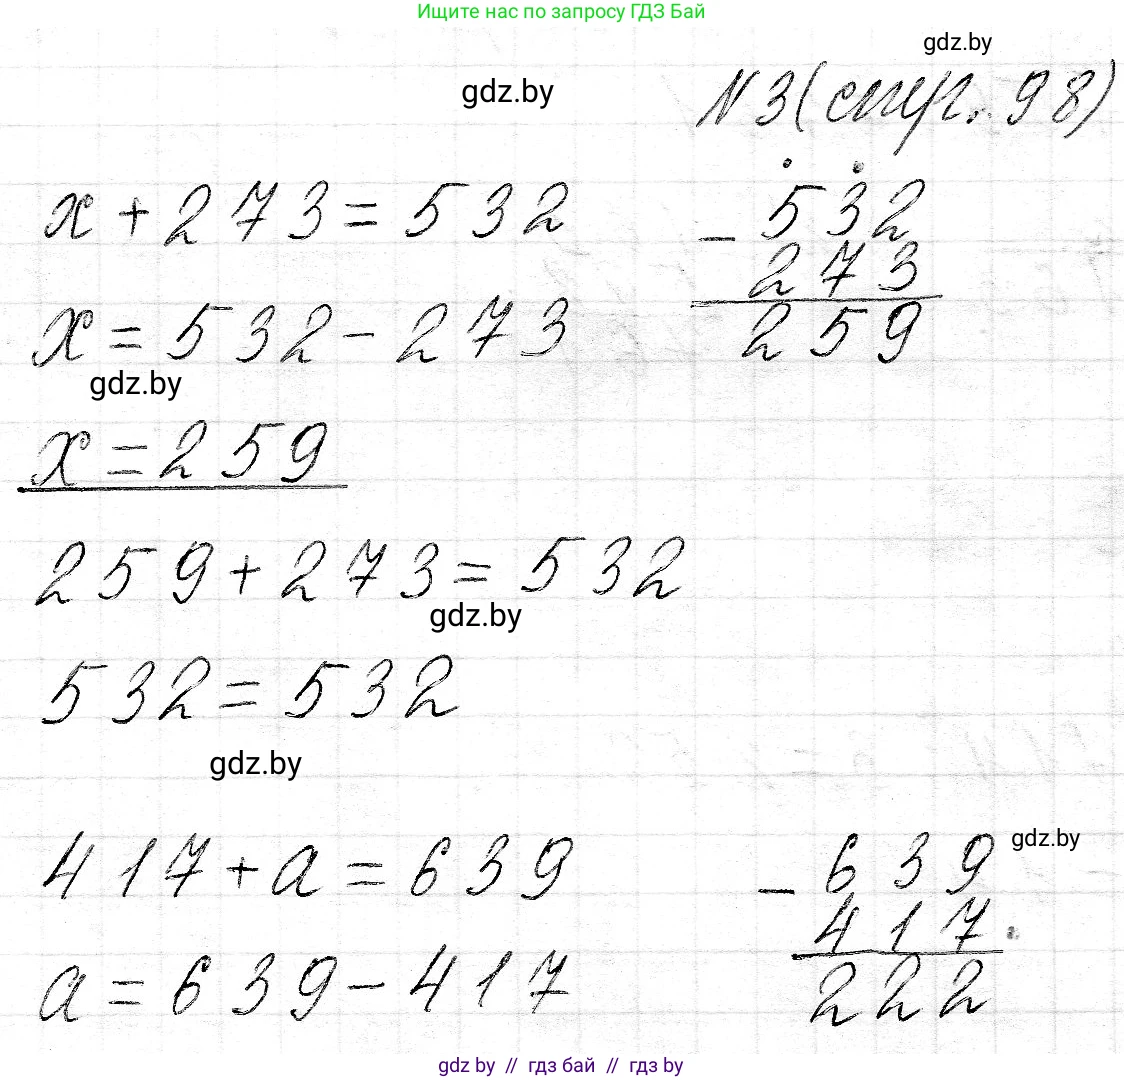 Ищите нас по запросу ГДЗ Бай
gdz.by
gdz.by
N 3 (стр. 98)
x + 273 = 532
- 532
273
259
x = 532 - 273
gdz.by
x = 259
259 + 273 = 532
gdz.by
532 = 532
gdz.by
417 + a = 639
- 639
417
222
gdz.by
a = 639 - 417
gdz by // гдз бай // гдз by